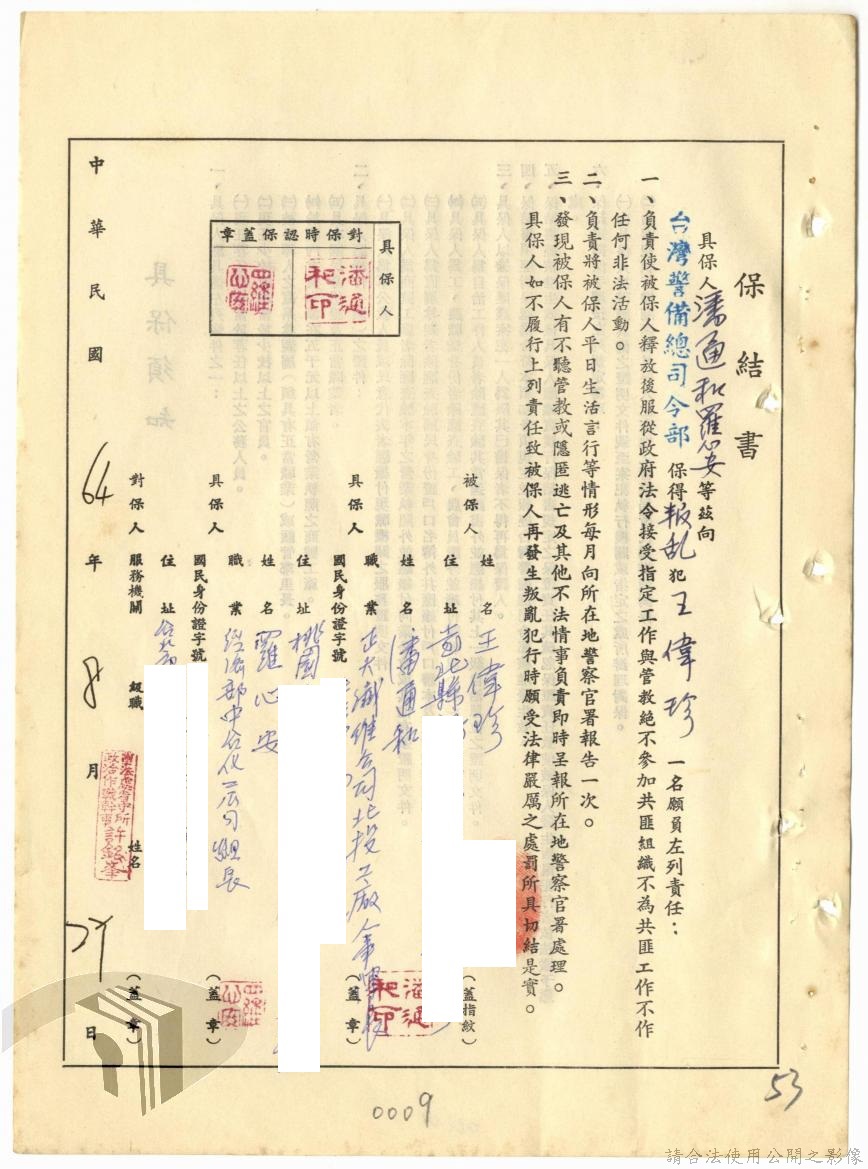 保結書
具保人潘通和羅心安等茲向
台灣警備總司令部保得叛乱犯王偉珍一名願負左列責任：
一、負責使被保人釋放後服從政府法令接受指定工作與管教絕不參加共匪組織不為共匪工作不作
任何非法活動。
二、負責將被保人平日生活言行等情形每月向所在地警察官署報告一次。
三、發現被保人有不聽管教或隱匿逃亡及其他不法情事負責即時呈報所在地警察官署處理。
具保人如不履行上列責任致被保人再發生叛亂犯行時願受法律嚴厲之處罰所具切結是實。
具保人
對保時認保蓋章
潘通和印
被保人
姓名 王偉珍
住址 台北縣
（蓋指紋）
具保人
姓名 潘通和
職業 正大纖維公司北投工廠
國民身份證字號
住址 桃園
（蓋章）
潘通和印
具保人
姓名 羅心安
職業 經濟部中台化工公司組長
國民身份證字號
住址 台北市
（蓋章）
對保人
服務機關
級職
姓名
（蓋章）
中華民國64年8月29日
53
0009
請合法使用公開之影像